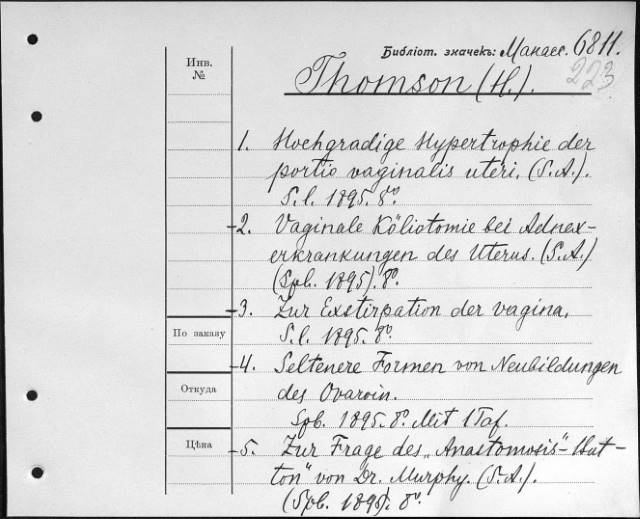 Библіот. значекъ: Манасс. 6811.
223
Инв.
№
Thomson (H.).
1. Hochgradige Hypertrophie der
portio vaginalis uteri. (S.A.).
S.l. 1895. 8°.
2. Vaginale Köliotomie bei Adnex-
erkrankungen des Uterus. (S.A.)
(Spb. 1895). 8°.
3. Zur Exstirpation der vagina.
S.l. 1895. 8°.
По заказу
4. Seltenere Formen von Neubildungen
des Ovaroin.
Откуда
Spb. 1895. 8°. Mit 1 Taf.
Цѣна
5. Zur Frage des „Anastomosis"-But-
ton" von Dr. Murphy. (S.A.).
(Spb. 1895). 8°.